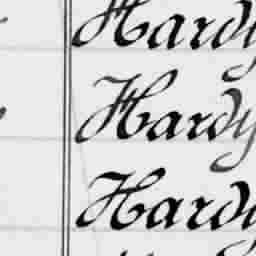 Hardy
Hardy
Hardy